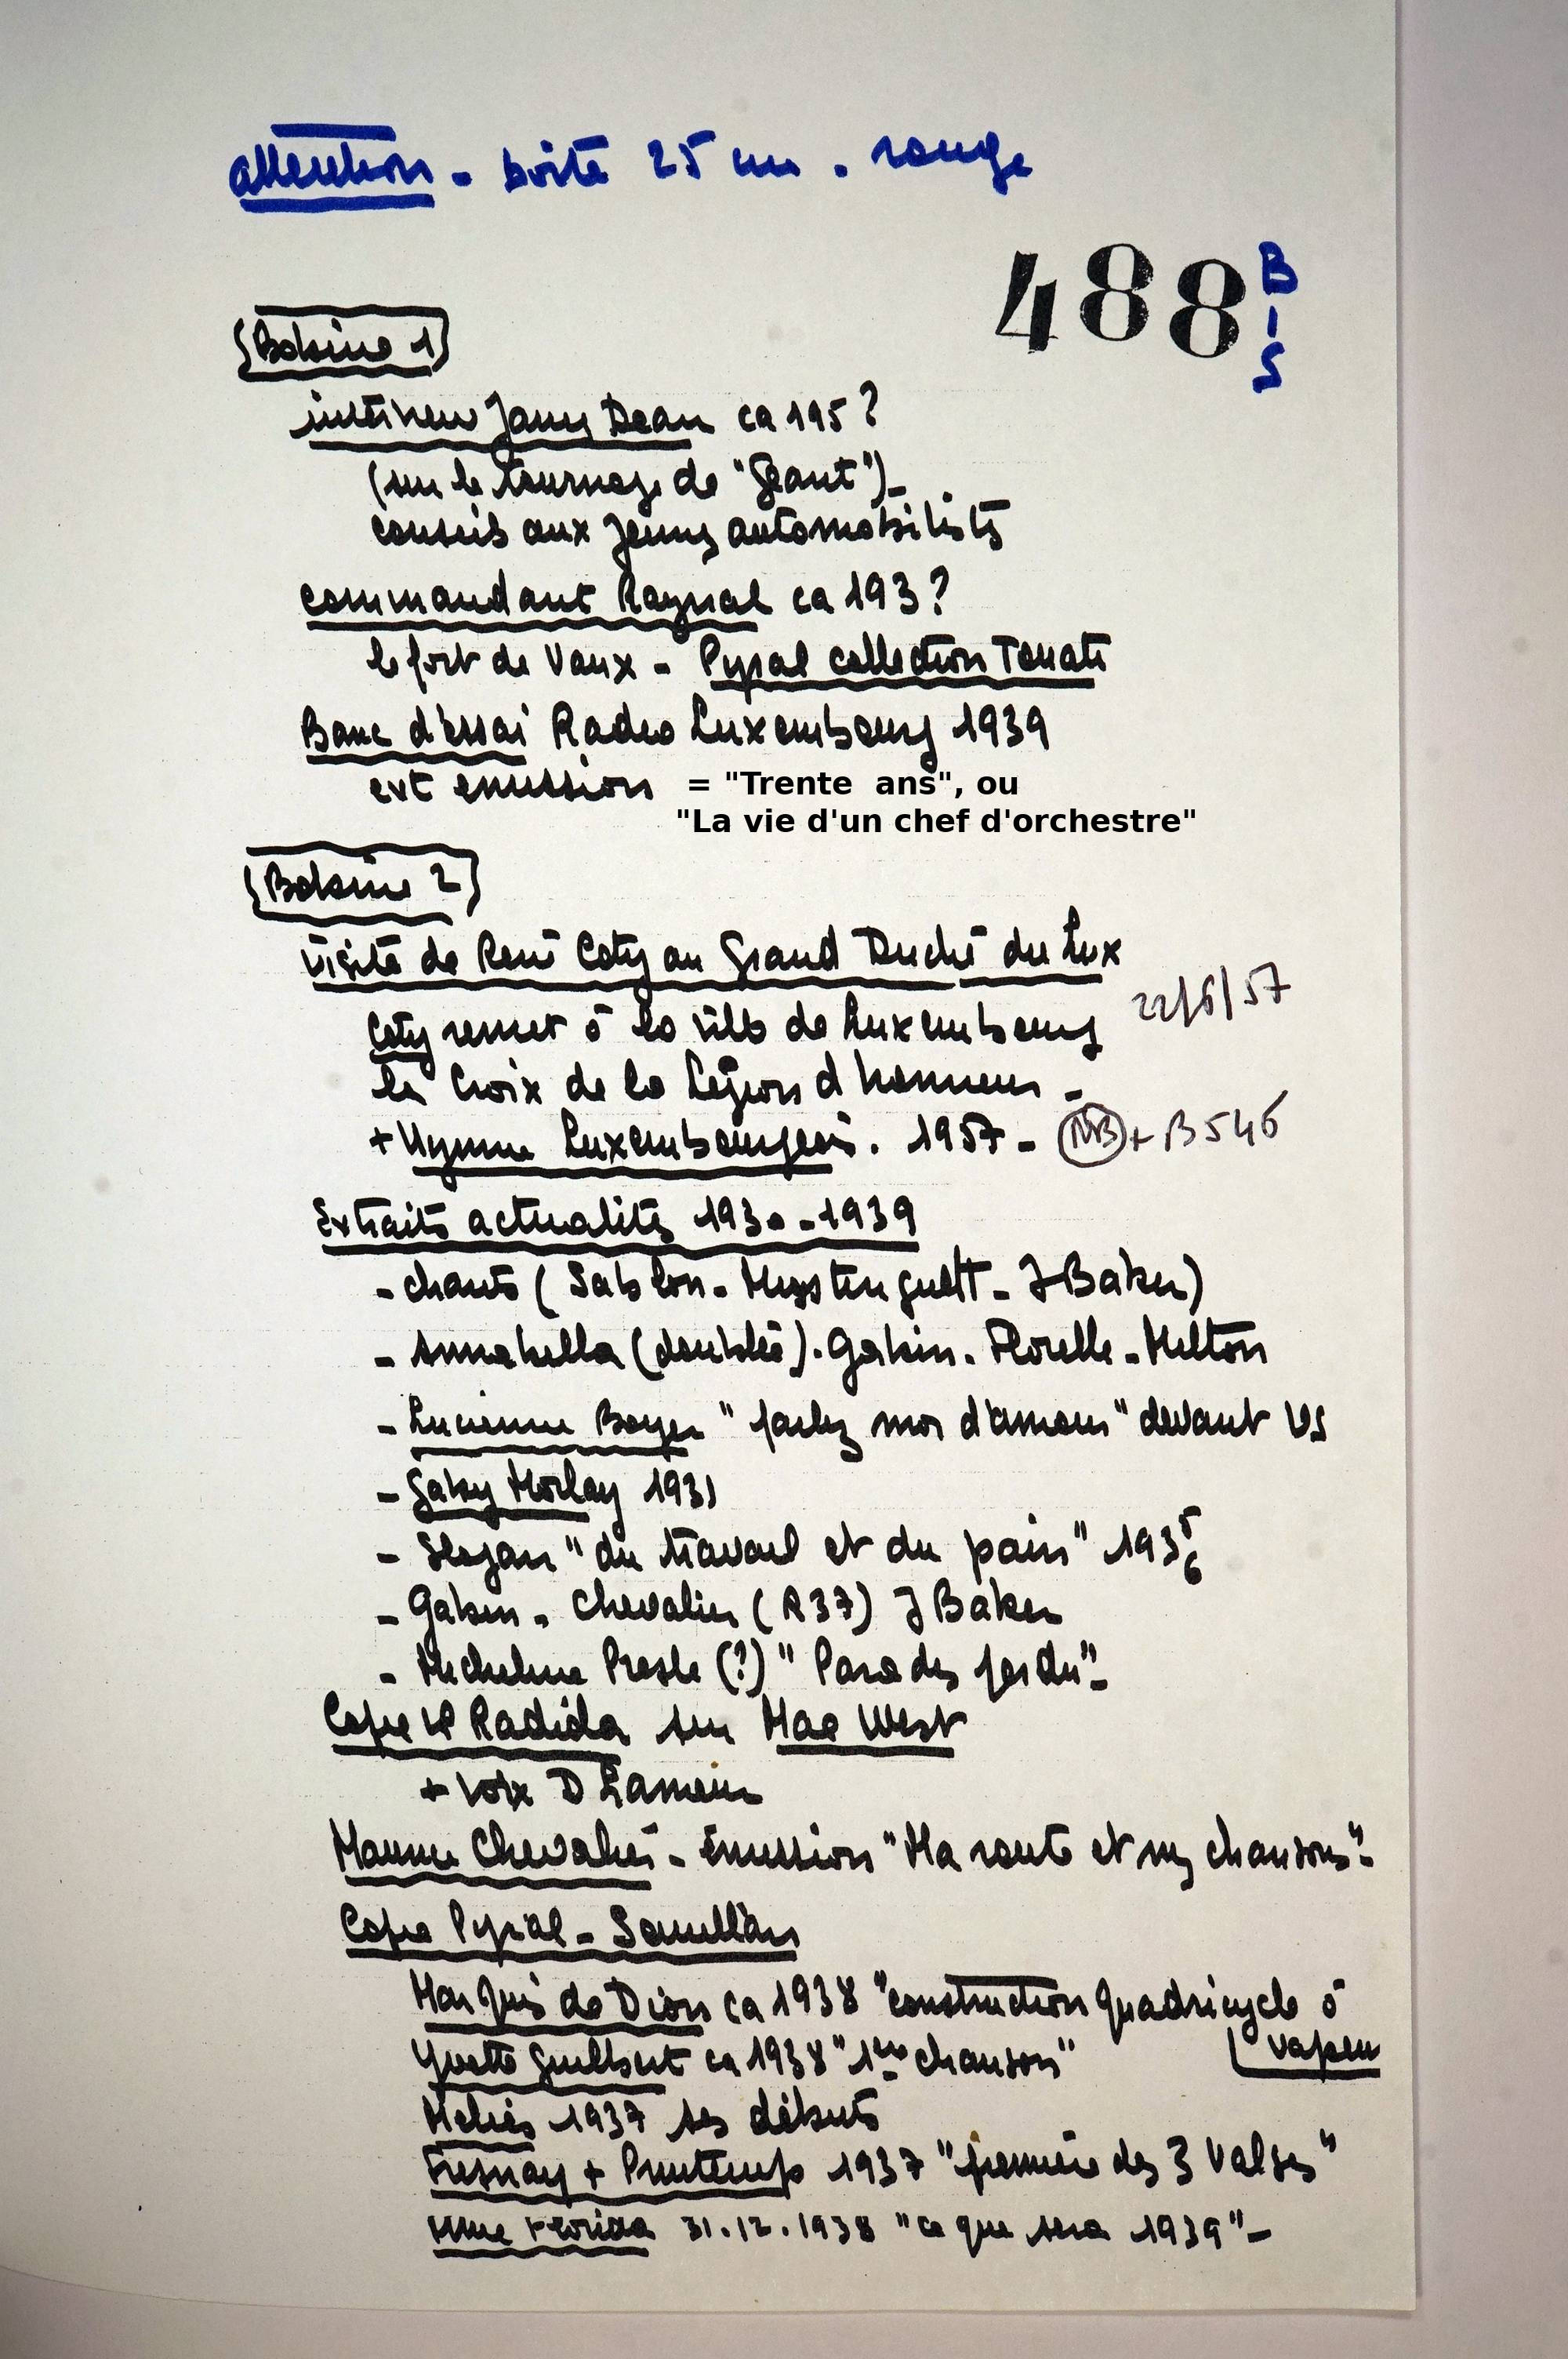 attention - boite 25 cm - rouge
488 BIS
Bobine 1
interview James Dean ca 195?
(sur le tournage de "Géant") -
conseils aux jeunes automobilistes
commandant Raynal ca 193?
le fort de Vaux - Pyral collection Touati
Banc d'essai Radio Luxembourg 1939
ext émission = "Trente ans", ou
"La vie d'un chef d'orchestre"
Bobine 2
Visite de René Coty au Grand Duché du Lux
22/6/57
Coty remet à la ville de Luxembourg
la Croix de la Légion d honneur -
+ Hymne Luxembourgeois. 1957 - NB + B546
Extraits actualités 1930-1939
- chants (Sablon - Mysstinguett - J Baker)
- Annabella (doublée). Gabin. Florelle - Milton
- Lucienne Boyer "parlez moi d'amour" devant US
- Gaby Morlay 1931
- Slogan "du travail et du pain" 1935 6
- Gabin - Chevalier (R37) J Baker
- Micheline Presle (?) "Paradis perdu" -
Copie LP Radiola sur Mae West
+ Voix D Lamour
Maurice Chevalier - Emission "Ma route et mes chansons" -
Copie Pyral -
Marquis de Dion ca 1938 "construction quadricycle à
vapeur
Yvette Guilbert ca 1938 "1ère chanson"
Méliès 1937 ses débuts
Fresnay + Printemps 1937 "première des 3 Valses"
Mme Florida 31.12.1938 "ce que sera 1939" -